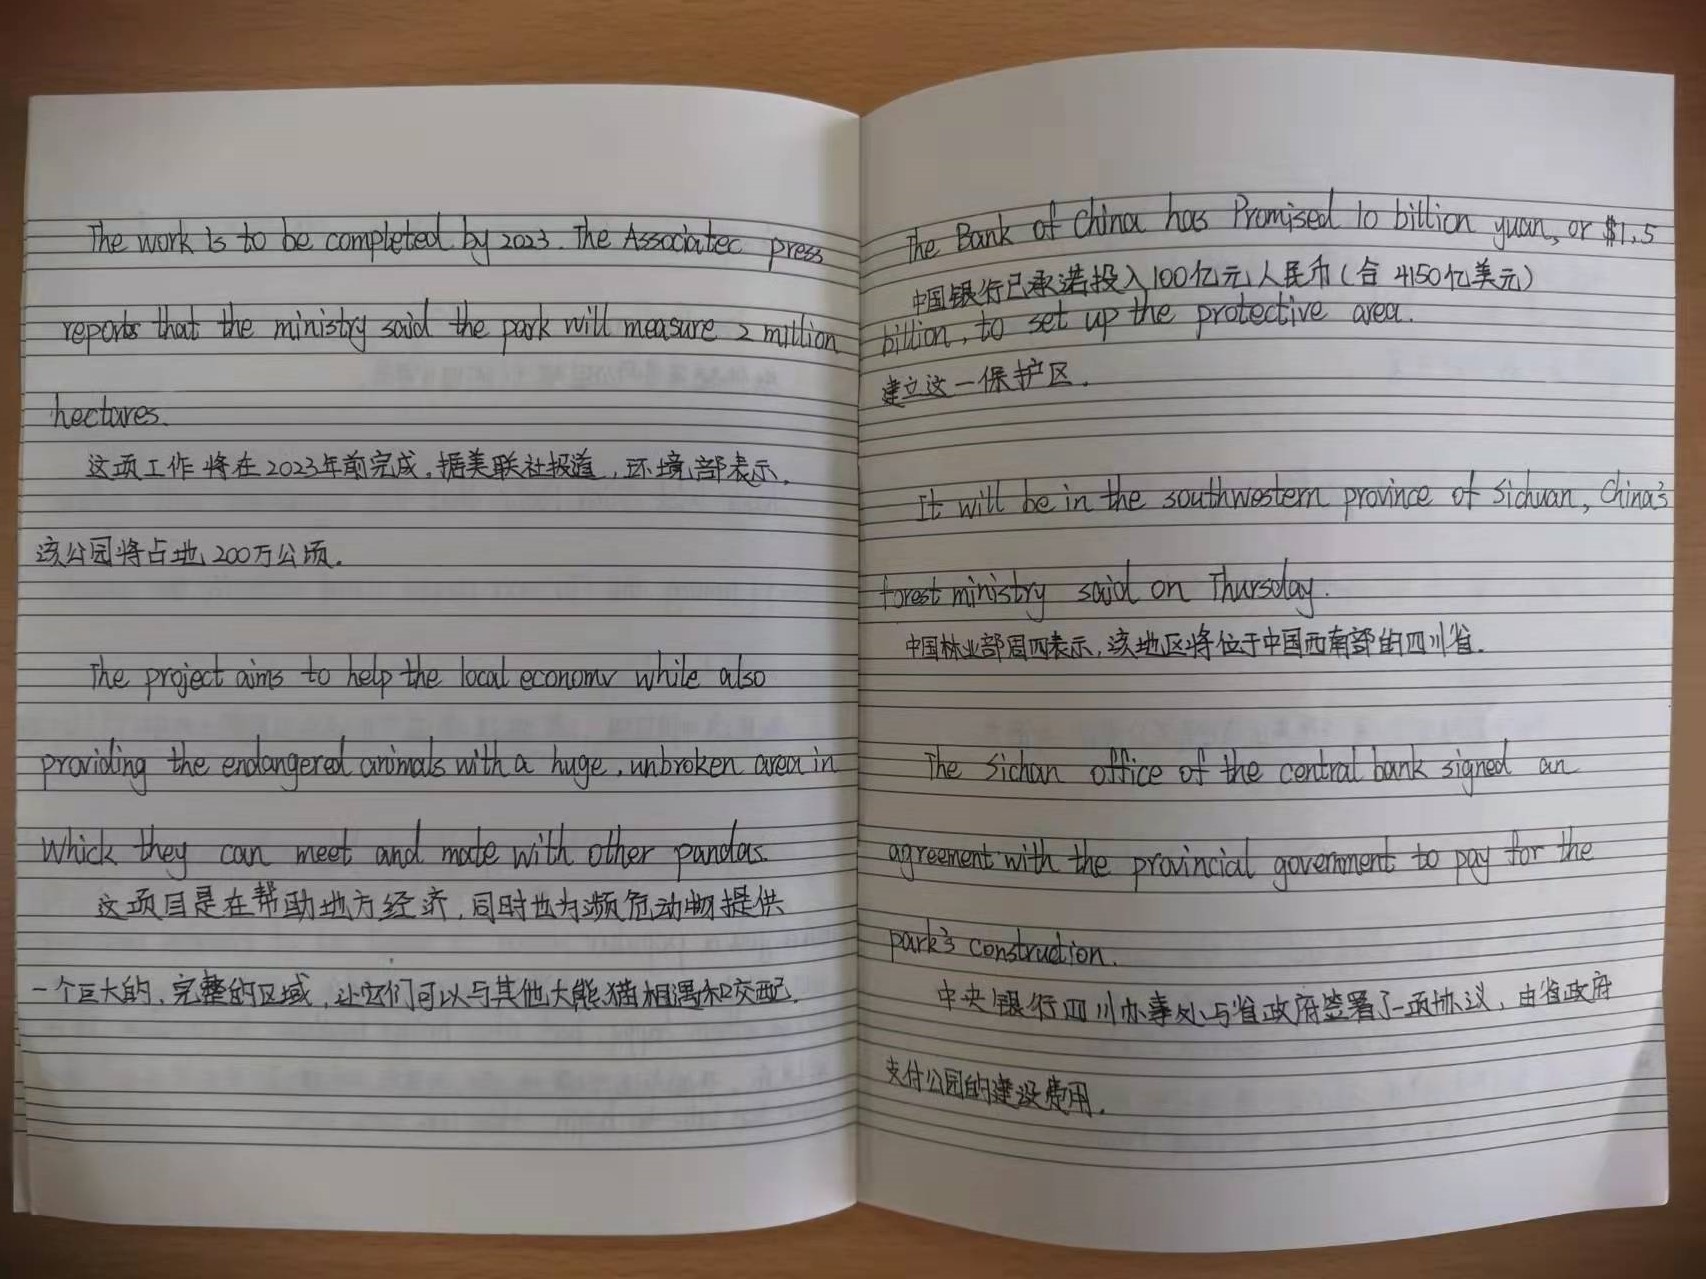 The work is to be completed by 2023. The Associatec press
reports that the ministry said the park will measure 2 million
hectares.
这项工作将在2023年前完成,据美联社报道,环境部表示,
该公园将占地200万公顷.
The project aims to help the local economv while also
providing the endangered animals with a huge, unbroken area in
Whick they can meet and mate with other pandas.
这项目是在帮助地方经济,同时也为濒危动物提供
一个巨大的,完整的区域,让它们可以与其他大熊猫相遇和交配.
The Bank of China has Promised 10 billion yuan, or $1.5
中国银行已承诺投入100亿元人民币(合4150亿美元)
billion, to set up the protective area.
建立这一保护区.
It will be in the southwestern province of Sichuan, China's
forest ministry said on Thursday.
中国林业部周四表示,该地区将位于中国西南部的四川省.
The Sichan office of the central bank signed an
agreement with the provincial government to pay for the
park's construction.
中央银行四川办事处与省政府签署了一项协议,由省政府
支付公园的建设费用.